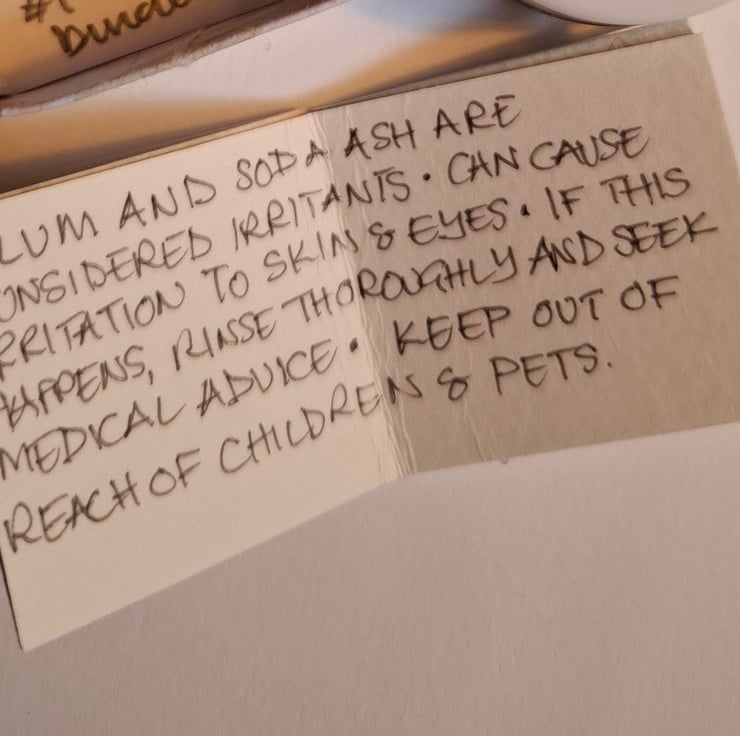 #1
LUM AND SODA ASH ARE
ONSIDERED IRRITANTS. CAN CAUSE
RRITATION TO SKIN & EYES. IF THIS
HAPPENS, RINSE THOROUGHLY AND SEEK
MEDICAL ADVICE. KEEP OUT OF
REACH OF CHILDREN & PETS.